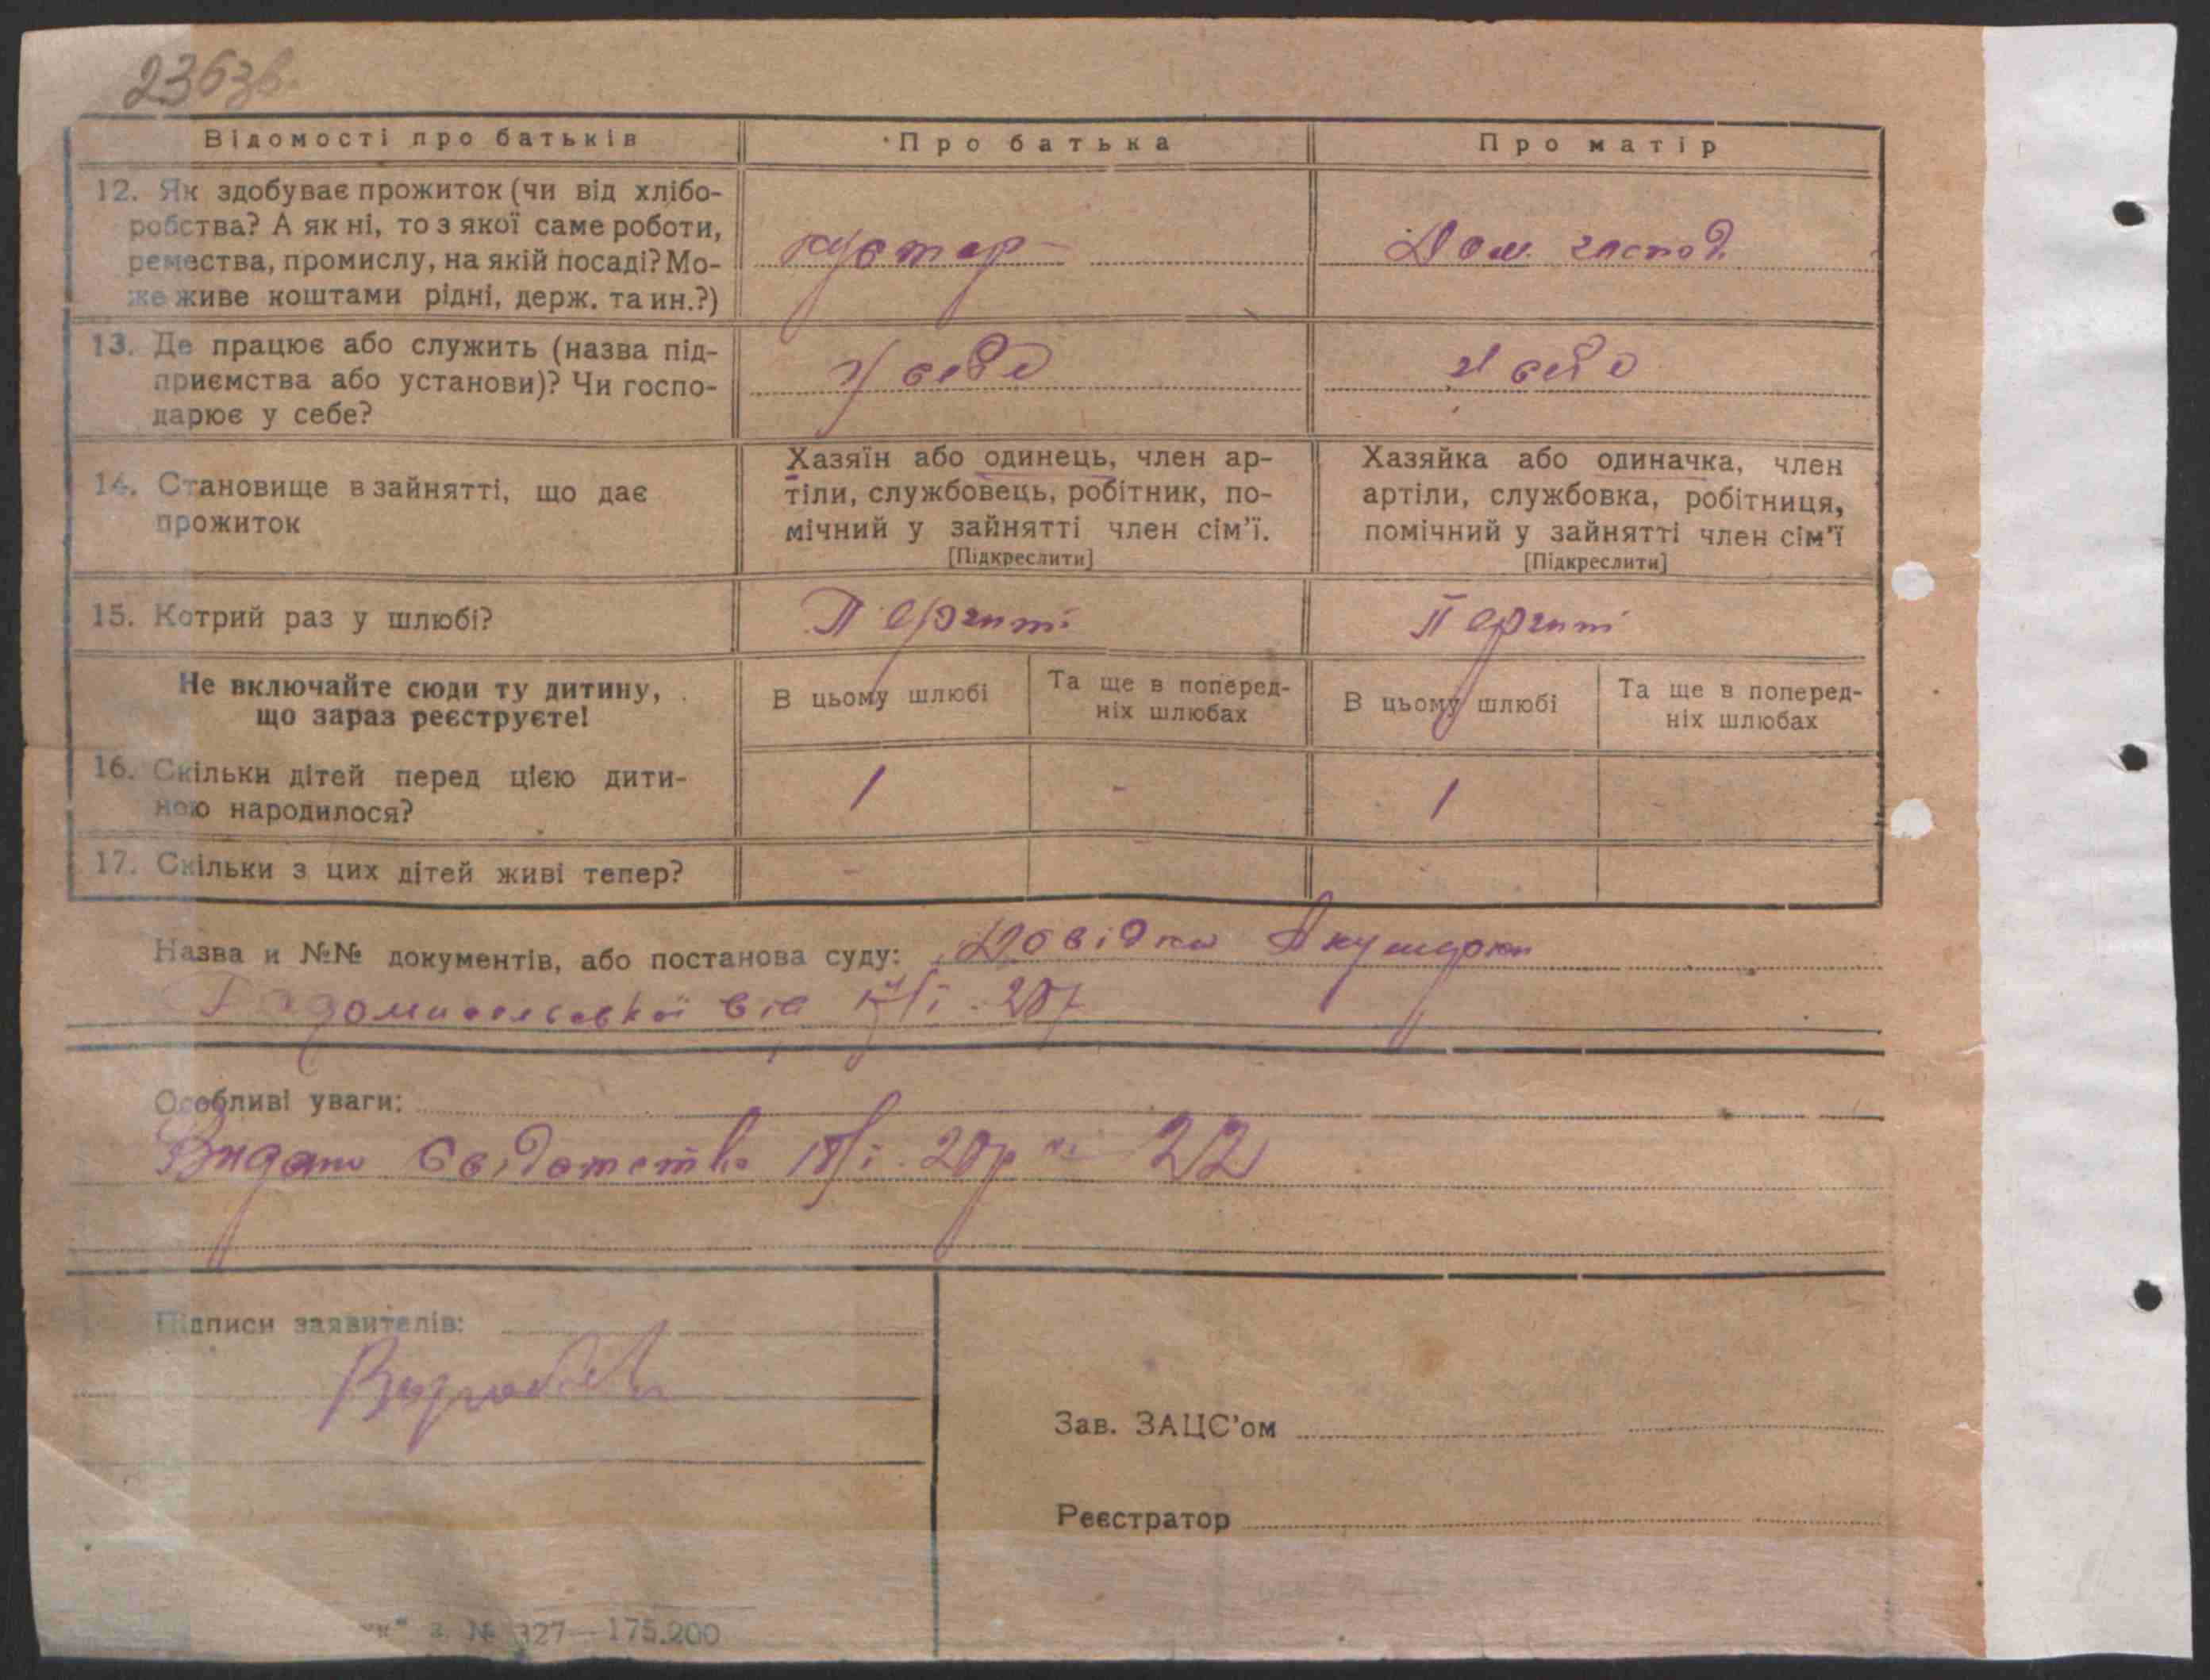 236зв.
Відомості про батьків
Про батька
Про матір
12. Як здобуває прожиток (чи від хлібо-
робства? А як ні, то з якої саме роботи,
ремества, промислу, на якій посаді? Мо-
же живе коштами рідні, держ. та ин.?)
кустар
Дом. господ.
13. Де працює або служить (назва під-
приємства або установи)? Чи госпо-
дарює у себе?
У себе
У себе
14. Становище в зайнятті, що дає
прожиток
Хазяїн або одинець, член ар-
тіли, службовець, робітник, по-
мічний у зайнятті член сім'ї.
[Підкреслити]
Хазяйка або одиначка, член
артіли, службовка, робітниця,
помічний у зайнятті член сім'ї
[Підкреслити]
15. Котрий раз у шлюбі?
Не включайте сюди ту дитину,
що зараз реєструєте!
В цьому шлюбі
Та ще в поперед-
ніх шлюбах
В цьому шлюбі
Та ще в поперед-
ніх шлюбах
16. Скільки дітей перед цією дити-
ною народилося?
1
-
1
-
17. Скільки з цих дітей живі тепер?
-
Назва и №№ документів, або постанова суду: Довідка Акушерки
від
Особливі уваги:
Видано свідотство 18/I 28р № 22
Підписи заявителів:
Зав. ЗАЦС'ом
Реєстратор
з. № 327—175.200